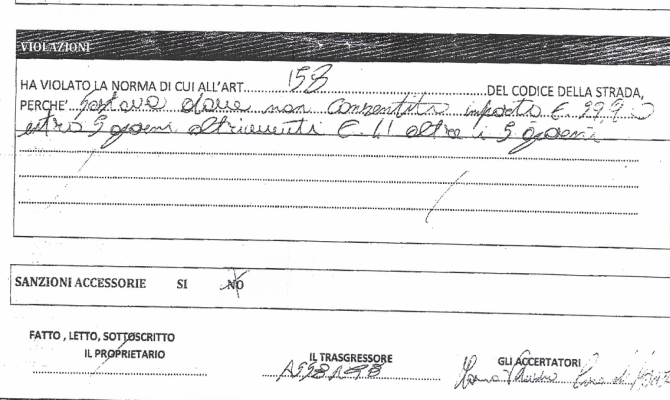 VIOLAZIONI
HA VIOLATO LA NORMA DI CUI ALL'ART. 158 DEL CODICE DELLA STRADA,
PERCHE' Sostava dove non consentito importo €.
entro 5 giorni altrimenti €. 41 oltre i 5 giorni
SANZIONI ACCESSORIE SI NO
FATTO , LETTO, SOTTOSCRITTO
IL PROPRIETARIO
IL TRASGRESSORE
GLI ACCERTATORI